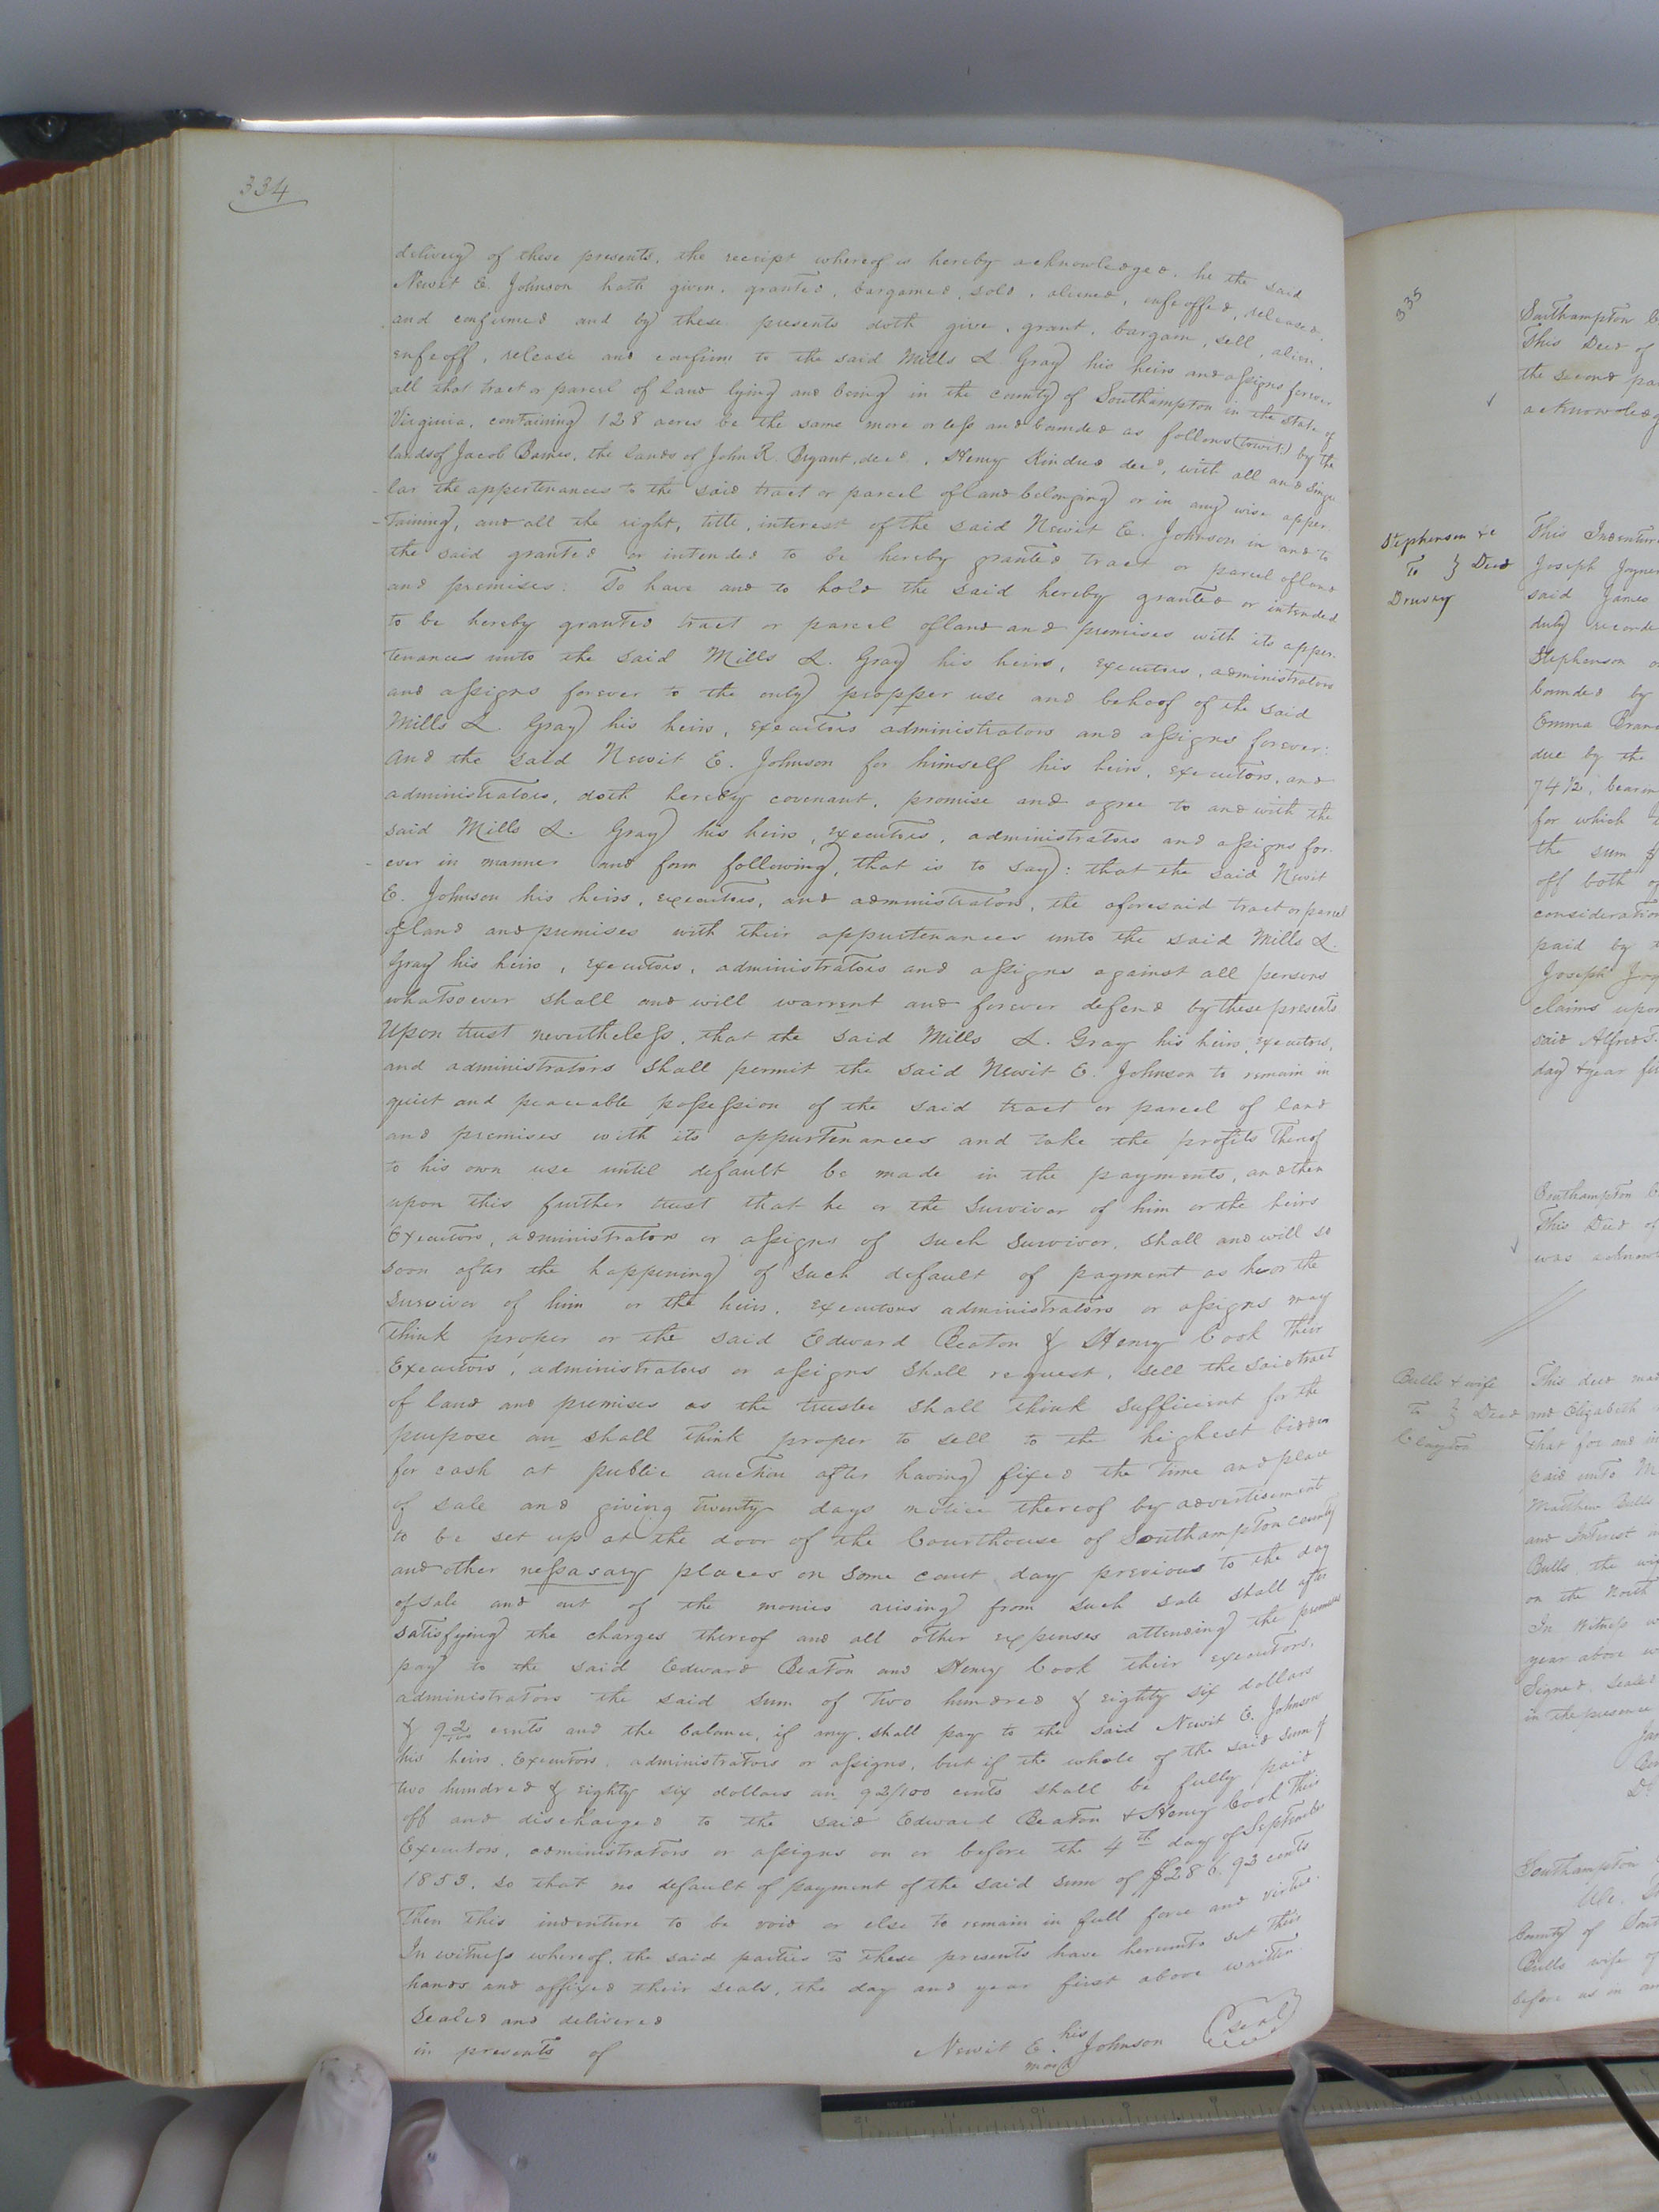 334
delivery of these presents, the receipt whereof is hereby acknowledged. he the said
Newit E. Johnson hath given, granted, bargained, sold, aliened, enfeoffed, released,
and confirmed and by these presents doth give, grant, bargain, sell, alien,
enfeoff, release and confirm to the said Mills L. Gray his heirs and assigns forever
all that tract or parcel of land lying and being in the county of Southampton in the State of
Virginia, containing 128 acres be the same more or less and bounded as follows (towit:) by the
lands of Jacob Barnes, the lands of John R. Bryant, decd, Henry Kindred decd, with all and singu
lar the appertenances to the said tract or parcel of land belonging or in any wise apper
-taining, and all the right, title, interest of the said Newit E. Johnson in and to
the said granted or intended to be hereby granted tract or parcel of land
and premises: To have and to hold the said hereby granted or intended
to be hereby granted tract or parcel of land and premises with its apper-
tenances unto the said Mills L. Gray his heirs, executors, administrators
and assigns forever to the only propper use and behoof of the said
Mills L. Gray his heirs, executors administrators and assigns forever:
and the said Newit E. Johnson for himself his heirs, executors, and
administrators, doth hereby covenant, promise and agree to and with the
said Mills L. Gray his heirs, executors, administrators and assigns for-
ever in manner and form following, that is to say: that the said Newit
E. Johnson his heirs, executors, and administrators, the aforesaid tract or parcel
of land and premises with their appurtenances unto the said Mills L.
Gray his heirs, executors, administrators and assigns against all persons
whatsoever shall and will warrent and forever defend by these presents
Upon trust nevertheless, that the said Mills L. Gray his heirs, executors,
and administrators shall permit the said Newit E. Johnson to remain in
quiet and peaceable possession of the said tract or parcel of land
and premises with its appurtenances and take the profits thereof
to his own use until default be made in the payments, and then
upon this further trust that he or the survivor of him or the heirs
Executors, administrators or assigns of such survivor, shall and will so
soon after the happening of such default of payment as he or the
survivor of him or the heirs, executors administrators or assigns may
think proper or the said Edward Beaton & Henry Cook their
Executors, administrators or assigns shall request, sell the said tract
of land and premises as the trustee shall think sufficient for the
purpose an shall think proper to sell to the heighest bidder
for cash at public auction after having fixed the time and place
of sale and giving twenty days notice thereof by advertisement
to be set up at the door of the Courthouse of Southampton county
and other nessasary places on some court day previous to the day
of sale and out of the monies arising from such sale shall after
satisfying the charges thereof and all other expenses attending the premises
pay to the said Edward Beaton and Henry Cook their executors,
administrators the said sum of two hundred & eighty six dollars
& 92/100 cents and the balance, if any, shall pay to the said Newit E. Johnson
his heirs, Executors, administrators or assigns, but if the whole of the said sum of
two hundred & eighty six dollars an 92/100 cents shall be fully paid
off and discharged to the said Edward Beaton & Henry Cook their
Executors, administrators or assigns on or before the 4th day of September
1853, so that no default of payment of the said sum of $286.92 cents
then this indenture to be void or else to remain in full force and virtue.
In witness whereof, the said parties to these presents have hereunto set their
hands and affixed their seals, the day and year first above written.
Sealed and delivered
in presents of
Newit E. his Johnson (Seal)
mark
335
Southampton
This Deed of
the second
acknowledg
Stephenson &c
To } Deed
Drewry
This Indentur
Joseph Joyner
said James
duly recorde
Stephenson
bounded by
Emma
due by the
74 1/2, bearin
for which
the sum $
off both
consideration
paid by
Joseph
claims upon
said Alfred
day & year
Southampton
This Deed of
was acknow
Bulls & wife
To } Deed
Clayton
This deed mad
and Elizabeth
That for and in
paid unto
Matthew Bulls
and Interest
Bulls, the
on the North
In Witness
year above
Signed, Sealed
in the presence
Southampton
County of
Bulls wife of
before us in